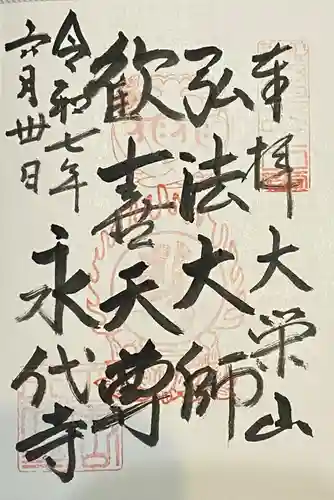 奉拝
大栄山
弘法大師
歓喜天尊
令和七年
六月卅日
永代寺